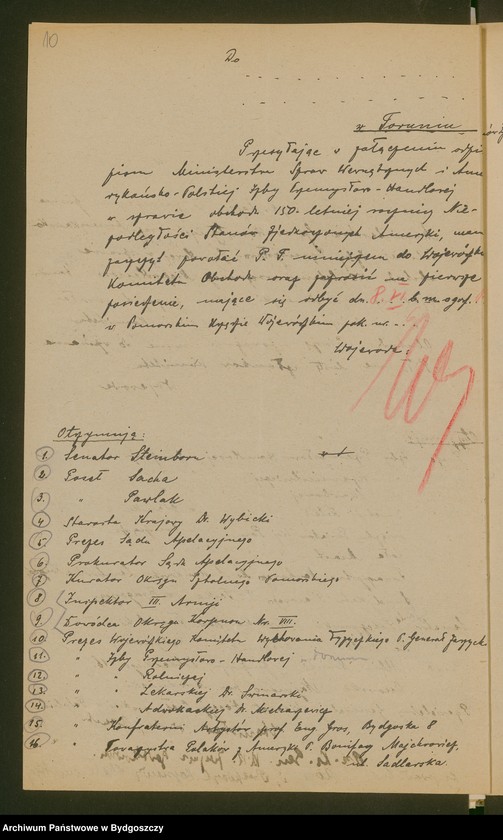 10
Do
w Toruniu
Przesyłając w załączeniu odpis
pisma Ministerstwa Spraw Wewnętrznych i Ame
rykańsko-Polskiej Izby Przemysłowo-Handlowej
w sprawie obchodu 150-letniej rocznicy Nie-
podległości Stanów Zjednoczonych Ameryki, mam
zaszczyt powołać P. T. niniejszem do Wojewódzk
Komitetu Obchodu oraz zaprosić na pierwsze
posiedzenie, mające się odbyć dn. 8. VI. b. m. o godz.
w Pomorskim Urzędzie Wojewódzkim pok. nr. . .
Wojewoda:
Otrzymują:
1. Senator Steinborn
2. Poseł Sacha
3. " Pawlak
4. Starosta Krajowy Dr. Wybicki
5. Prezes Sądu Apelacyjnego
6. Prokurator Sądu Apelacyjnego
7. Kurator Okręgu Szkolnego Pomorskiego
8. Inspektor III. Armji
9. Dowódca Okręgu Korpusu Nr. VIII.
10. Prezes Wojewódzkiego Komitetu Wychowania Fizycznego P. Generał
11. " Izby Przemysłowo-Handlowej
12. " " Rolniczej
13. " " Lekarskiej Dr.
14. " " Adwokackiej Dr.
15. " Konfraterni prof Eug Gros, Bydgoska 8
16. " Towarzystwa Polaków z Ameryki P. Bonifacy
ul. Sadlarska.
Archiwum Państwowe w Bydgoszczy